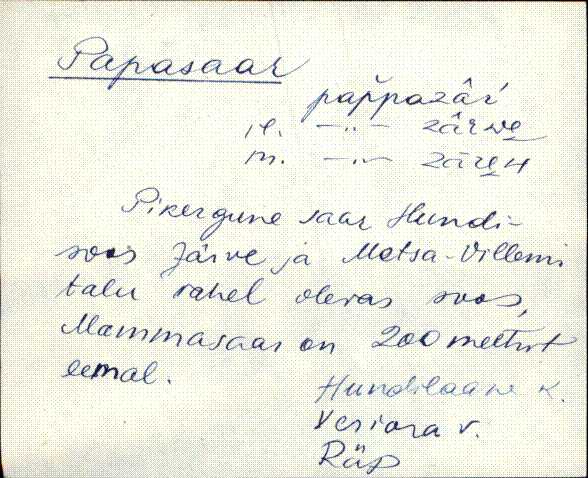 Papasaar
pap̆pazâŕ
il. —"— zârwe
in. —"— zâren
Pikergune saar Hundi-
soos Järve ja Metsa-Villemi
talu vahel olevas soos,
Mammasaar on 200 meetrit
eemal.
Hundilaane k.
Veriora v.
Räp